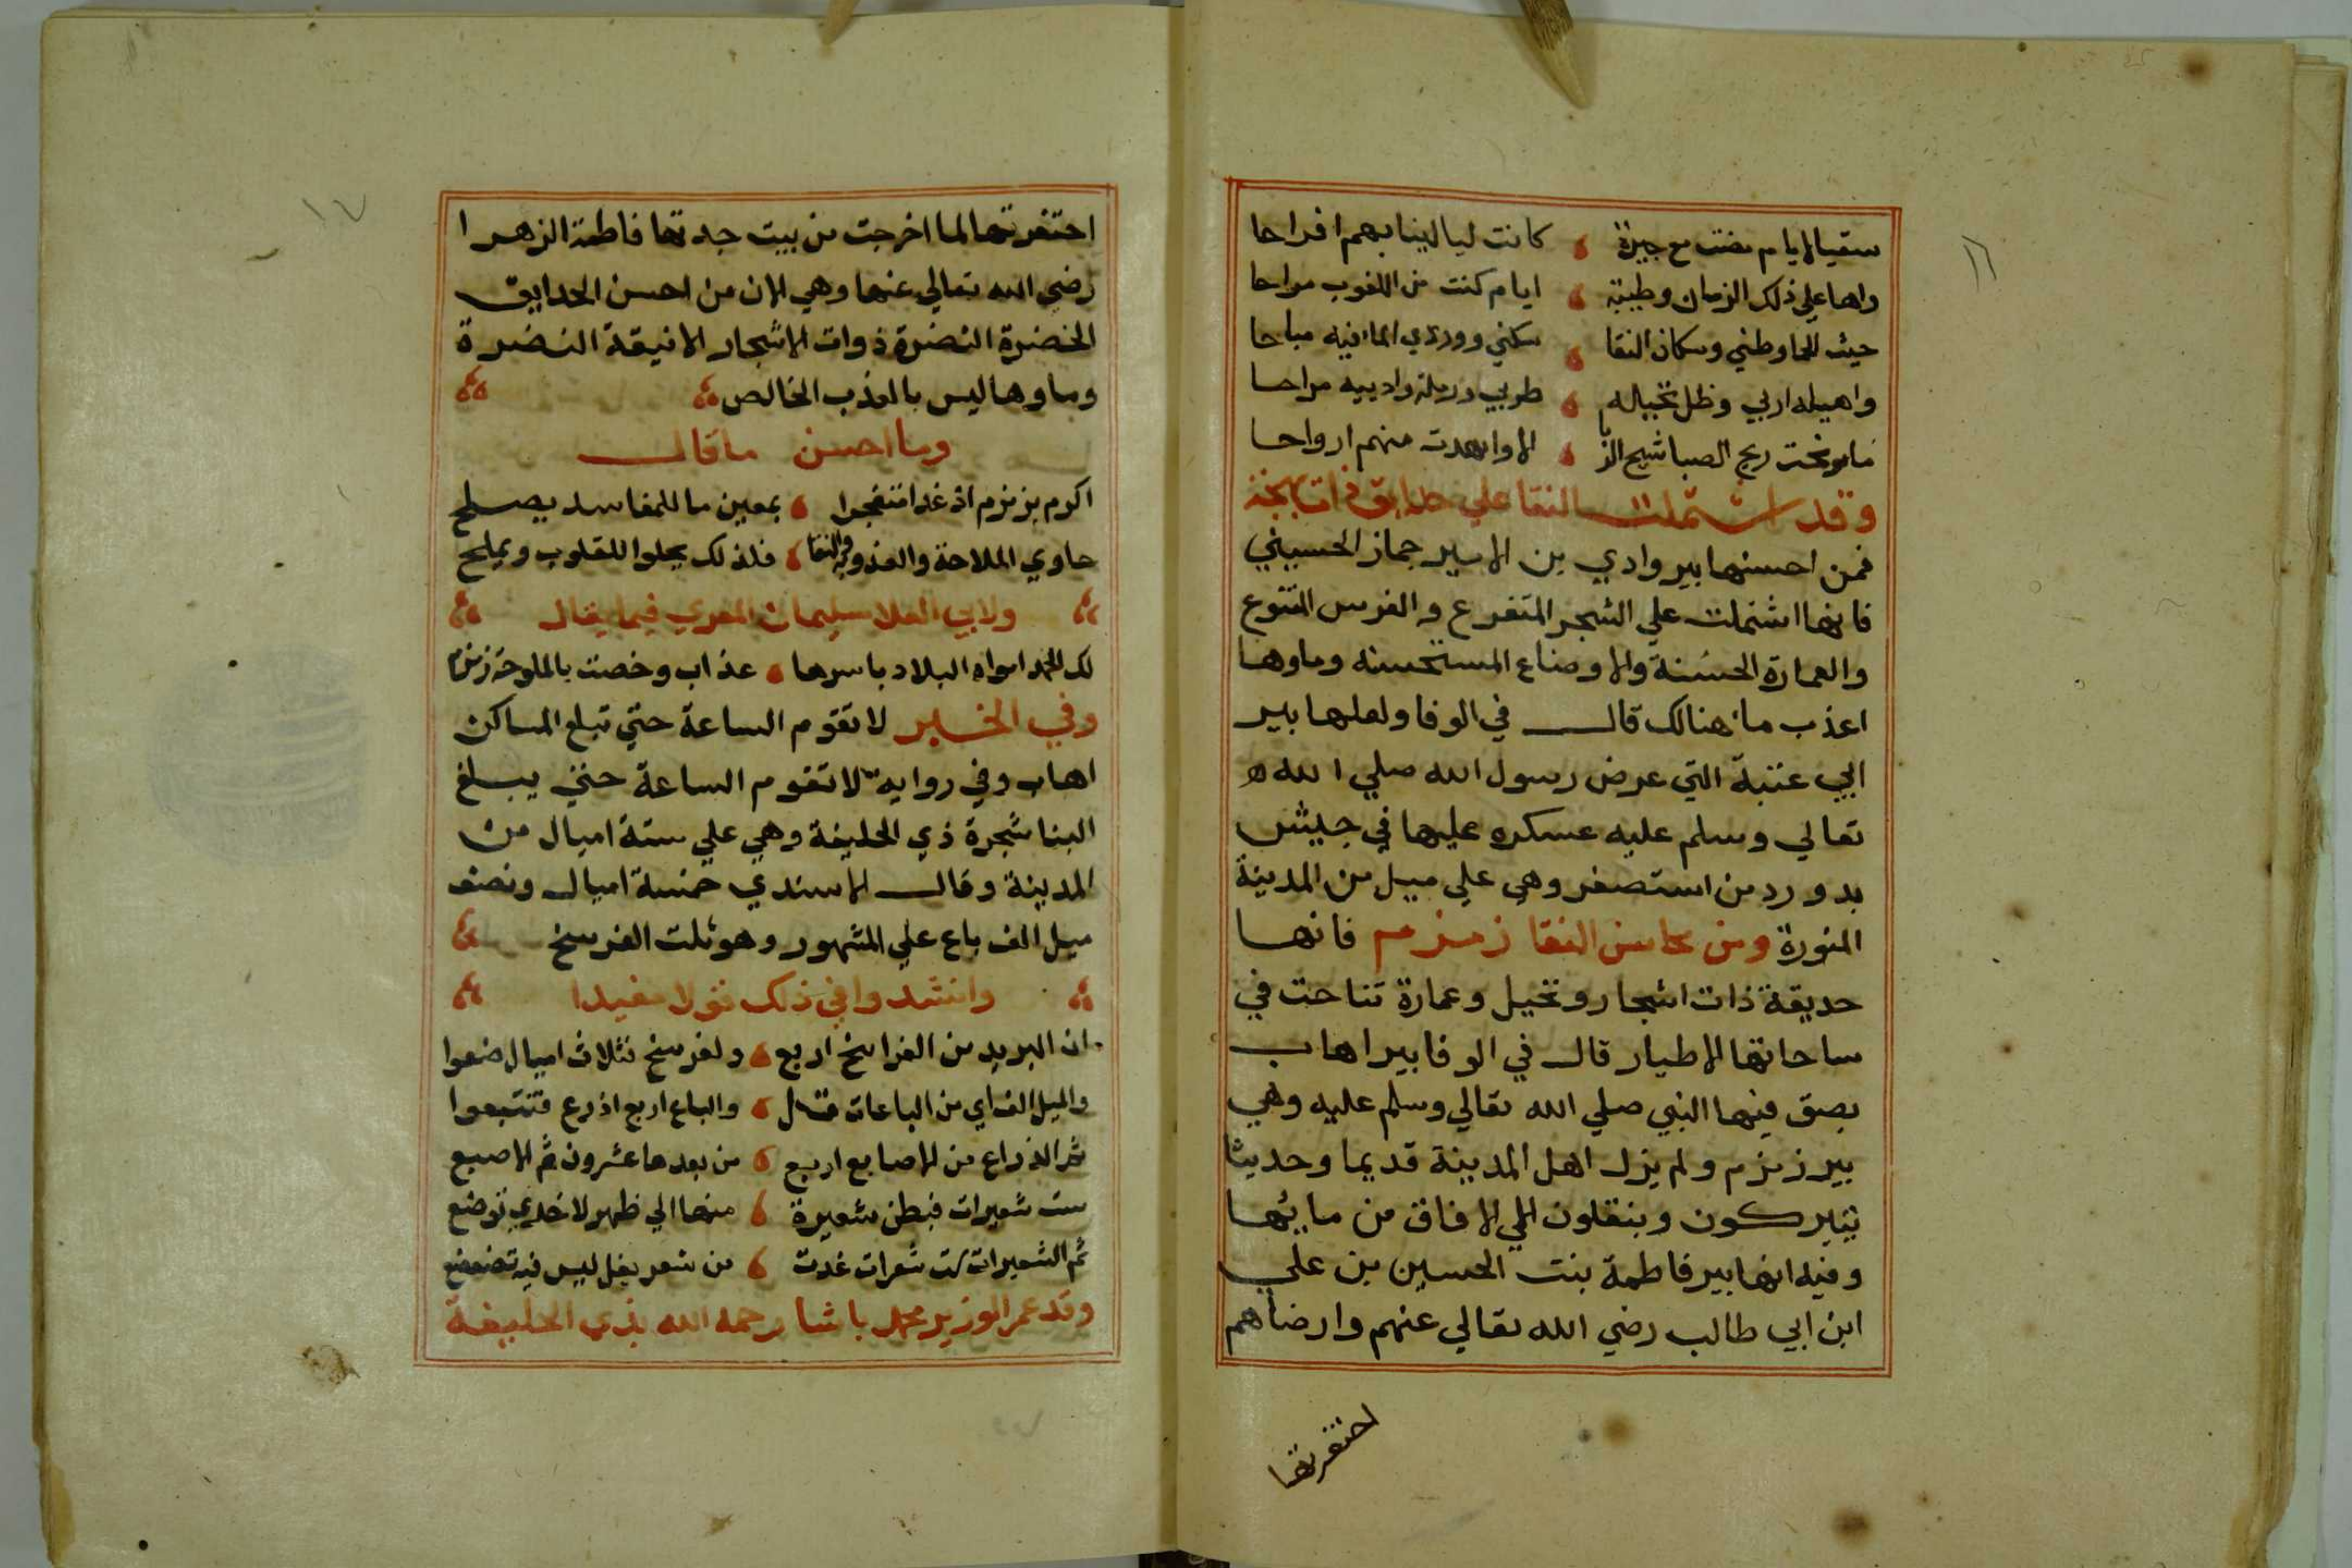 ١٦
سقيا لايام مضت مع جيرة كانت ليالينا بهم افراحا
واها علي ذلك الزمان وطيبة ايام كنت من اللغوب مراحا
حيث الحما وطني وسكان النقا سكني ووردي الما فيه مباحا
واهيله اربي وظل نخيله طربي ورملة وادييه مراحا
ما رنحت ريح الصبا شيح الربا الا واهدت منهم ارواحا
وقد اشتملت النقا علي حدايق ذات بهجة
فمن احسنها بير وادي بن الامير جماز الحسيني
فانها اشتملت علي الشجر المتفرع والغرس المتنوع
والعمارة الحسنة والاوضاع المستحسنه وماوها
اعذب ما هنالك قال في الوفا ولعلها بير
ابي عنبة التي عرض رسول الله صلي الله
تعالي وسلم عليه عسكره عليها في جيش
بدر ورد من استصغر وهي علي ميل من المدينة
المنورة ومن محاسن النقا زمزم فانها
حديقة ذات اشجار ونخيل وعمارة تناحت في
ساحاتها الاطيار قال في الوفا بير اهاب
بصق فيها النبي صلي الله تعالي وسلم عليه وهي
بير زمزم ولم يزل اهل المدينة قديما وحديثا
يتبركون وينقلون الي الافاق من مايها
وفيه انها بير فاطمة بنت الحسين بن علي
ابن ابي طالب رضي الله تعالي عنهم وارضاهم
احتفرتها
١٧
احتفرتها لما اخرجت من بيت جدتها فاطمة الزهرا
رضي الله تعالي عنها وهي الان من احسن الحدايق
الخضرة النضرة ذوات الاشجار الانيقة النضرة
وماوها ليس بالعذب الخالص
وما احسن ما قال
اكرم بزمزم اذ غدا متفجرا بمعين ما للمفاسد يصلح
حاوي الملاحة والعذوبة والنقا فلذلك يحلوا للقلوب ويملح
ولابي العلا سليمان المعري فيما يقال
لك الحمد امواه البلاد باسرها عذاب وخصت بالملوحة زمزم
وفي الخبر لا تقوم الساعة حتي تبلغ المساكن
اهاب وفي رواية لا تقوم الساعة حتي يبلغ
البنا شجرة ذي الحليفة وهي علي ستة اميال من
المدينة وقال الاسندي خمسة اميال ونصف
ميل الف باع علي المشهور وهو ثلث الفرسخ
وانشدوا في ذلك نولا مفيدا
ان البريد من الفراسخ اربع ولفرسخ فثلاث اميال ضعوا
والميل الف اي من الباعات قل والباع اربع اذرع فتتبعوا
ثم الذراع من الاصابع اربع من بعدها عشرون ثم الاصبع
ست شعيرات فبطن شعيرة منها الي ظهر لاخري توضع
ثم الشعيرات ست شعرات غدت من شعر بغل ليس فيه تضعضع
وقد عمر الوزير محمد باشا رحمه الله بذي الحليفة